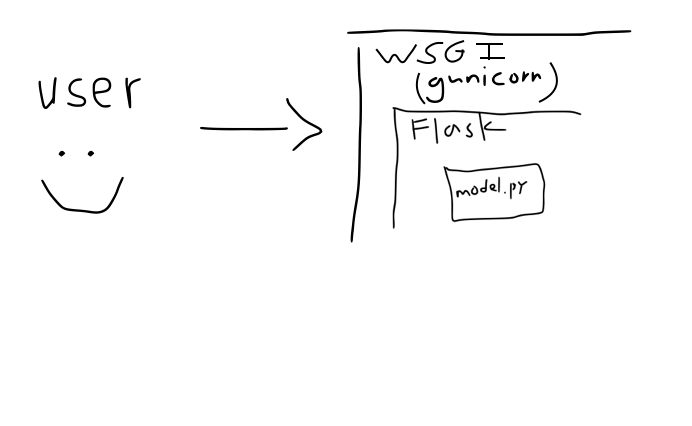 user
WSGI
(gunicorn)
Flask
model.py